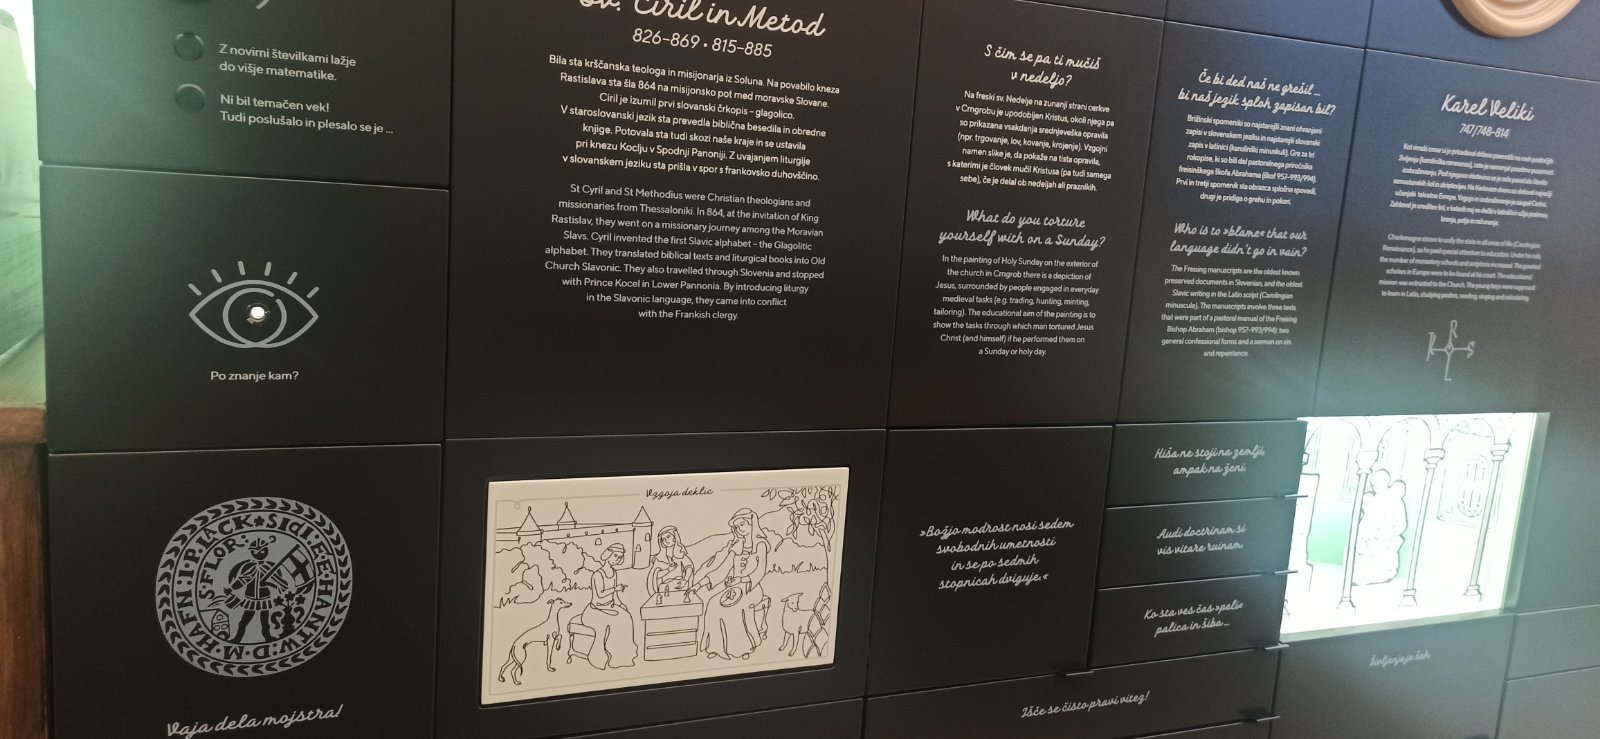 Z novimi številkami lažje
do višje matematike.
Ni bil temačen vek!
Tudi poslušalo in plesalo se je ...
Po znanje kam?
S·FLOR·
Vaja dela mojstra!
Sv. Ciril in Metod
826–869 • 815–885
Bila sta krščanska teologa in misijonarja iz Soluna. Na povabilo kneza
Rastislava sta šla 864 na misijonsko pot med moravske Slovane.
Ciril je izumil prvi slovanski črkopis – glagolico.
V staroslovanski jezik sta prevedla biblična besedila in obredne
knjige. Potovala sta tudi skozi naše kraje in se ustavila
pri knezu Koclju v Spodnji Panoniji. Z uvajanjem liturgije
v slovanskem jeziku sta prišla v spor s frankovsko duhovščino.
St Cyril and St Methodius were Christian theologians and
missionaries from Thessaloniki. In 864, at the invitation of King
Rastislav, they went on a missionary journey among the Moravian
Slavs. Cyril invented the first Slavic alphabet - the Glagolitic
alphabet. They translated biblical texts and liturgical books into Old
Church Slavonic. They also travelled through Slovenia and stopped
with Prince Kocel in Lower Pannonia. By introducing liturgy
in the Slavonic language, they came into conflict
with the Frankish clergy.
Vzgoja deklic
S čim se pa ti mučiš
v nedeljo?
Na freski sv. Nedelje na zunanji strani cerkve
v Crngrobu je upodobljen Kristus, okoli njega pa
so prikazana vsakdanja srednjeveška opravila
(npr. trgovanje, lov, kovanje, krojenje). Vzgojni
namen slike je, da pokaže na tista opravila,
s katerimi je človek mučil Kristusa (pa tudi samega
sebe), če je delal ob nedeljah ali praznikih.
What do you torture
yourself with on a Sunday?
In the painting of Holy Sunday on the exterior of
the church in Crngrob there is a depiction of
Jesus, surrounded by people engaged in everyday
medieval tasks (e.g. trading, hunting, minting,
tailoring). The educational aim of the painting is to
show the tasks through which man tortured Jesus
Christ (and himself) if he performed them on
a Sunday or holy day.
»Božjo modrost nosi sedem
svobodnih umetnosti
in se po sedmih
stopnicah dviguje.«
Če bi ded naš ne grešil ...
bi naš jezik sploh zapisan bil?
Brižinski spomeniki so najstarejši znani ohranjeni
zapisi v slovenskem jeziku in najstarejši slovanski
zapis v latinici (karolinški minuskuli). Gre za tri
rokopise, ki so bili del pastoralnega priročnika
freisinškega škofa Abrahama (škof 957–993/994).
Prvi in tretji spomenik sta obrazca splošne spovedi,
drugi je pridiga o grehu in pokori.
Who is to »blame« that our
language didn't go in vain?
The Freising manuscripts are the oldest known
preserved documents in Slovenian, and the oldest
Slavic writing in the Latin script (Carolingian
minuscule). The manuscripts involve three texts
that were part of a pastoral manual of the Freising
Bishop Abraham (bishop 957-993/994): two
general confessional forms and a sermon on sin
and repentance.
Hiša ne stoji na zemlji,
ampak na ženi.
Audi doctrinam si
vis vitare ruinam.
Ko sta ves čas »peli«
palica in šiba ...
Išče se čisto pravi vitez!
Karel Veliki
747/748–814
Charlemagne strove to unify the state in all areas of life (Carolingian
Renaissance), so he paid special attention to education. Under his rule,
the number of monastery schools and scriptoria increased. The greatest
scholars in Europe were to be found at his court. The educational
mission was entrusted to the Church. The young boys were supposed
to learn in Latin, studying psalms, reading, singing and calculating.
K R S L